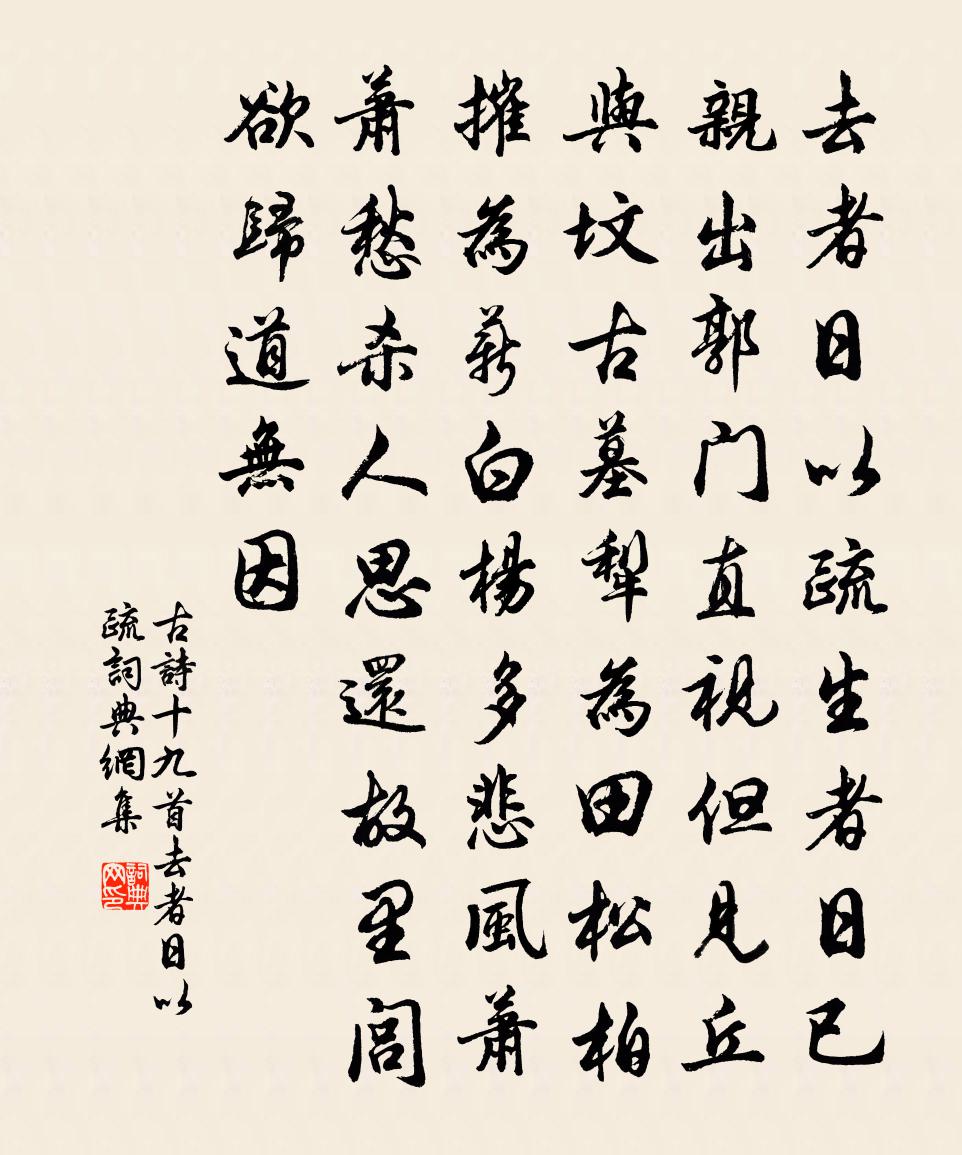 去者日以疏生者日已
親出郭门直視但見丘
與坟古墓犁為田松柏
摧為薪白楊多悲風蕭
蕭愁杀人思還故里閭
欲歸道無因
古詩十九首去者日以
疏詞典網集
詞典网印